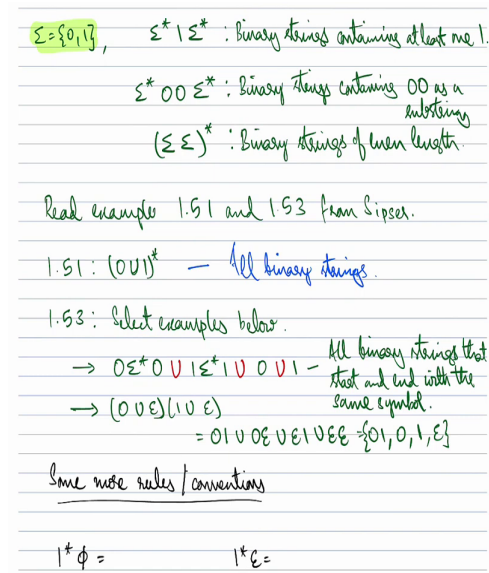 Σ={0,1}, Σ* 1 Σ* : Binary strings containing at least one 1.
Σ* 00 Σ* : Binary strings containing 00 as a
substring
(ΣΣ)* : Binary strings of even length.
Read example 1.51 and 1.53 from Sipser.
1.51 : (0∪1)* — All binary strings.
1.53 : Select examples below.
→ 0Σ*0 ∪ 1Σ*1 ∪ 0 ∪ 1 — All binary strings that
start and end with the
same symbol.
→ (0 ∪ ε)(1 ∪ ε)
= 01 ∪ 0ε ∪ ε1 ∪ εε = {01, 0, 1, ε}
Some more rules / conventions
1*ϕ = 1*ε =